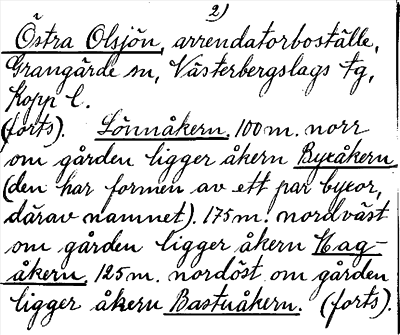 2)
Östra Olsjön, arrendatorboställe,
Grangärde sn, Västerbergslags tg,
Kopp l.
(forts). Lönnåkern, 100 m. norr
om gården ligger åkern Byxåkern
(den har formen av ett par byxor,
därav namnet). 175 m. nordväst
om gården ligger åkern Hag-
åkern, 125 m. nordöst om gården
ligger åkern Bastuåkern. (forts).